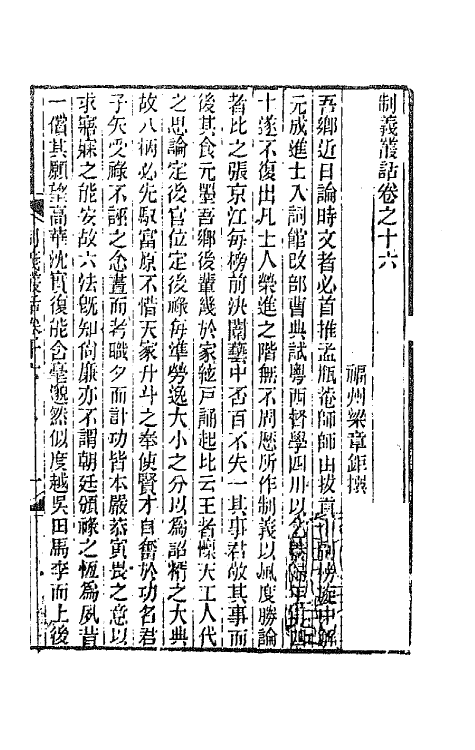 制義叢話卷之十六
福州梁章鉅撰
吾鄉近日論時文者必首推孟瓶菴師師由拔貢中解
元成進士入詞館改部曹典試粤西督學四川以
十遂不復出凡士人榮進之階無不周歷所作制義以風度勝論
者比之張京江每榜前決闈藝中否百不失一其事君敬其事而
後其食元墨吾鄉後輩幾於家絃戸誦起比云王者懍天工人代
之思論定後官位定後祿每準勞逸大小之分以為詔糈之大典
故八柄必先馭富原不惜天家升斗之奉使賢才自奮於功名君
子矢受祿不誣之念晝而考職夕而計功皆本嚴恭寅畏之意以
求寤寐之能安故六法既知尚廉亦不謂朝廷頒祿之恆為夙昔
一償其願望高華沈實復能含毫邈然似度越吳田馬李而上後